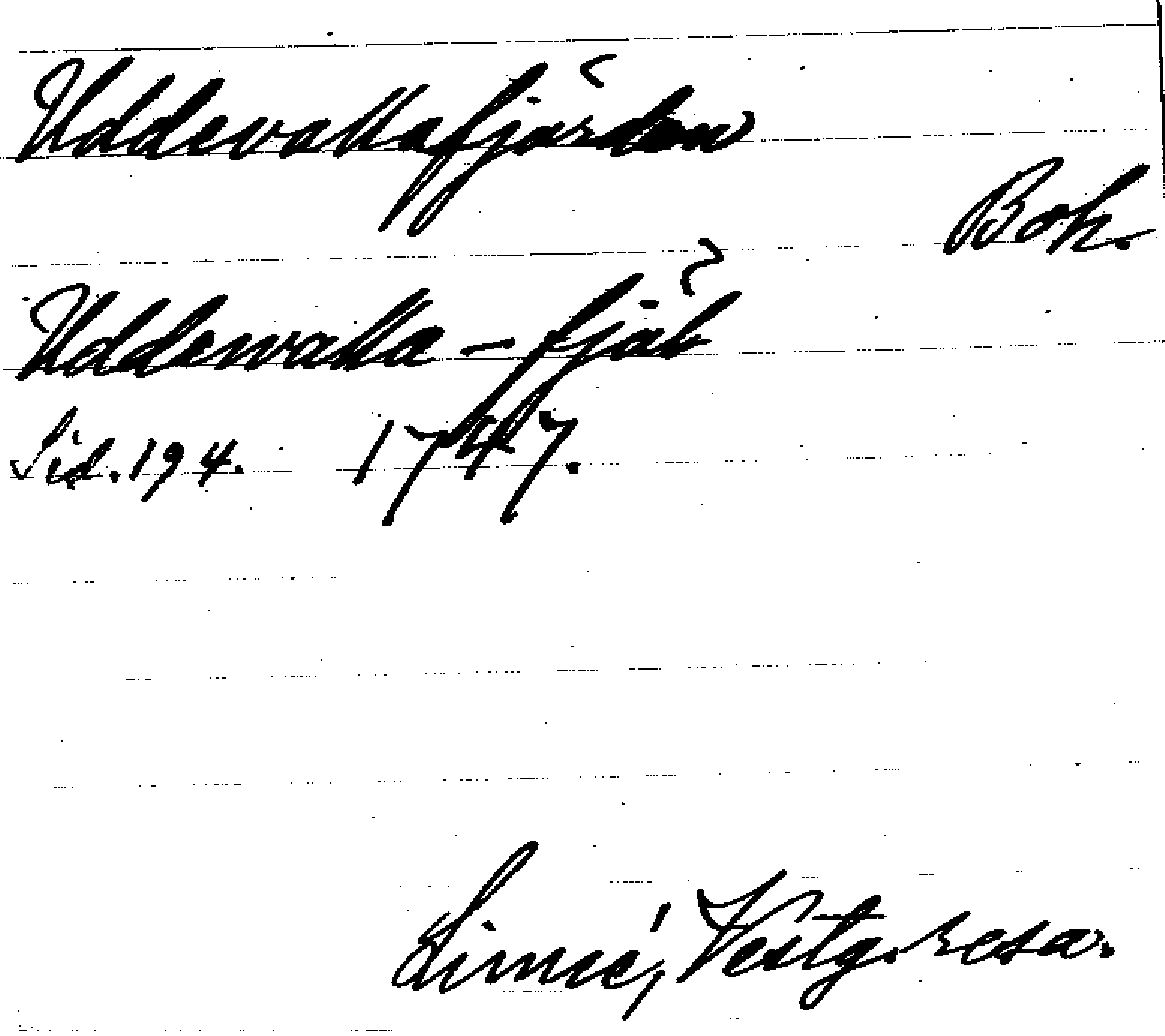 Uddevallafjärden
Boh.
Uddewalla-fjäl
Sid. 194. 1747.
Linné, Vestg. resa.